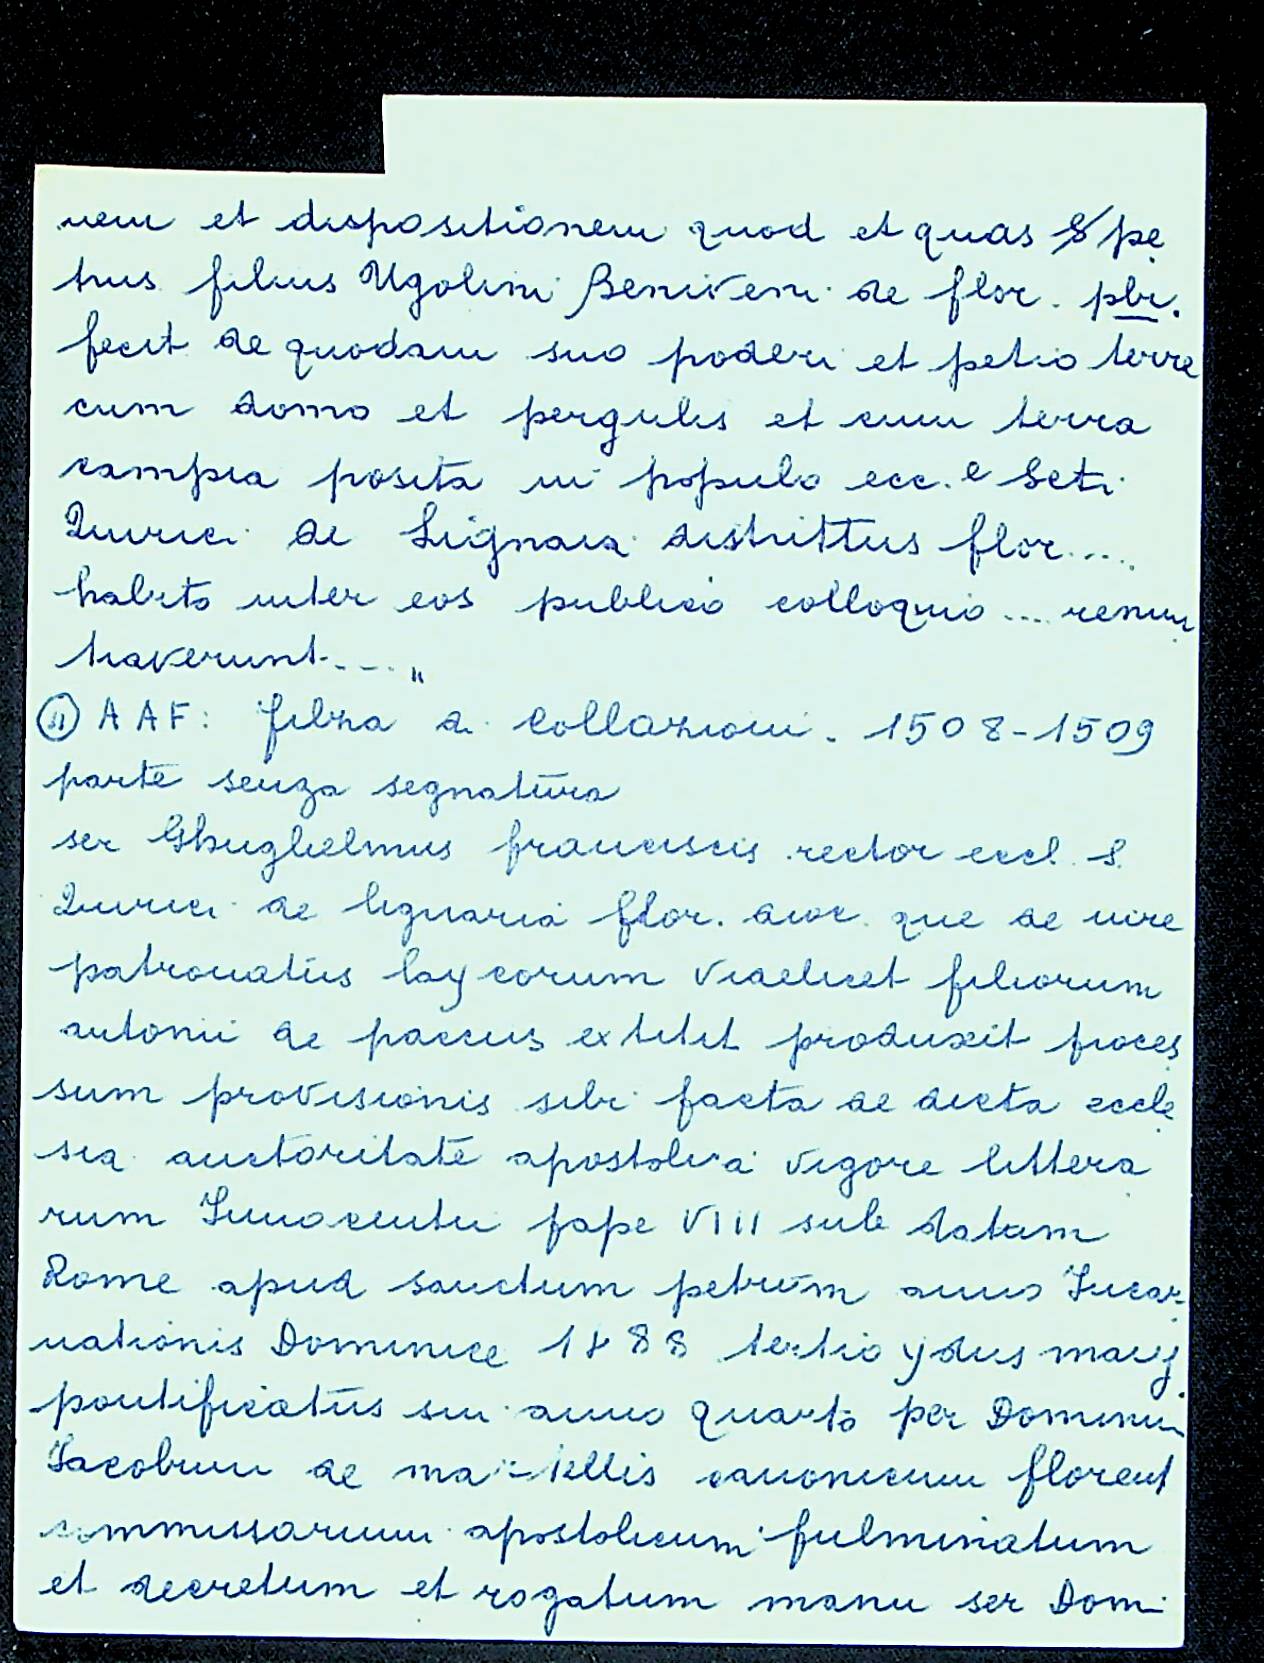 nem et dispositionem quod et quas S/ pe
trus filius Ugolini Beniveni de flor. pbr.
fecit de quodam suo poderi et petio terre
cum domo et pergulis et cum terra
campia posita in populo ecc.e Scti
Quirici de Lignaia distrittus flor....
habito inter eos publico colloquio ... renun
tiaverunt .... "
AAF: filza di Collazioni. 1508-1509
parte senza segnatura
ser Ghuglielmus franciscis rector eccl. S.
Quirici de lignaria flor. dioc. que de iure
patronatus laycorum videlicet filiorum
antonii de paccis extitit produxit proces
sum provisionis sibi facta de dicta eccle
sia auctoritate apostolica vigore littera
rum Innocentii pape VIII sub datum
Rome apud sanctum petrum anno Incar
nationis Dominice 1488 tertio ydus maij
pontificatus sui anno quarto per Dominum
Iacobum de canonicum florent
commissarium apostolicum fulminatum
et decretum et rogatum manu ser Domi